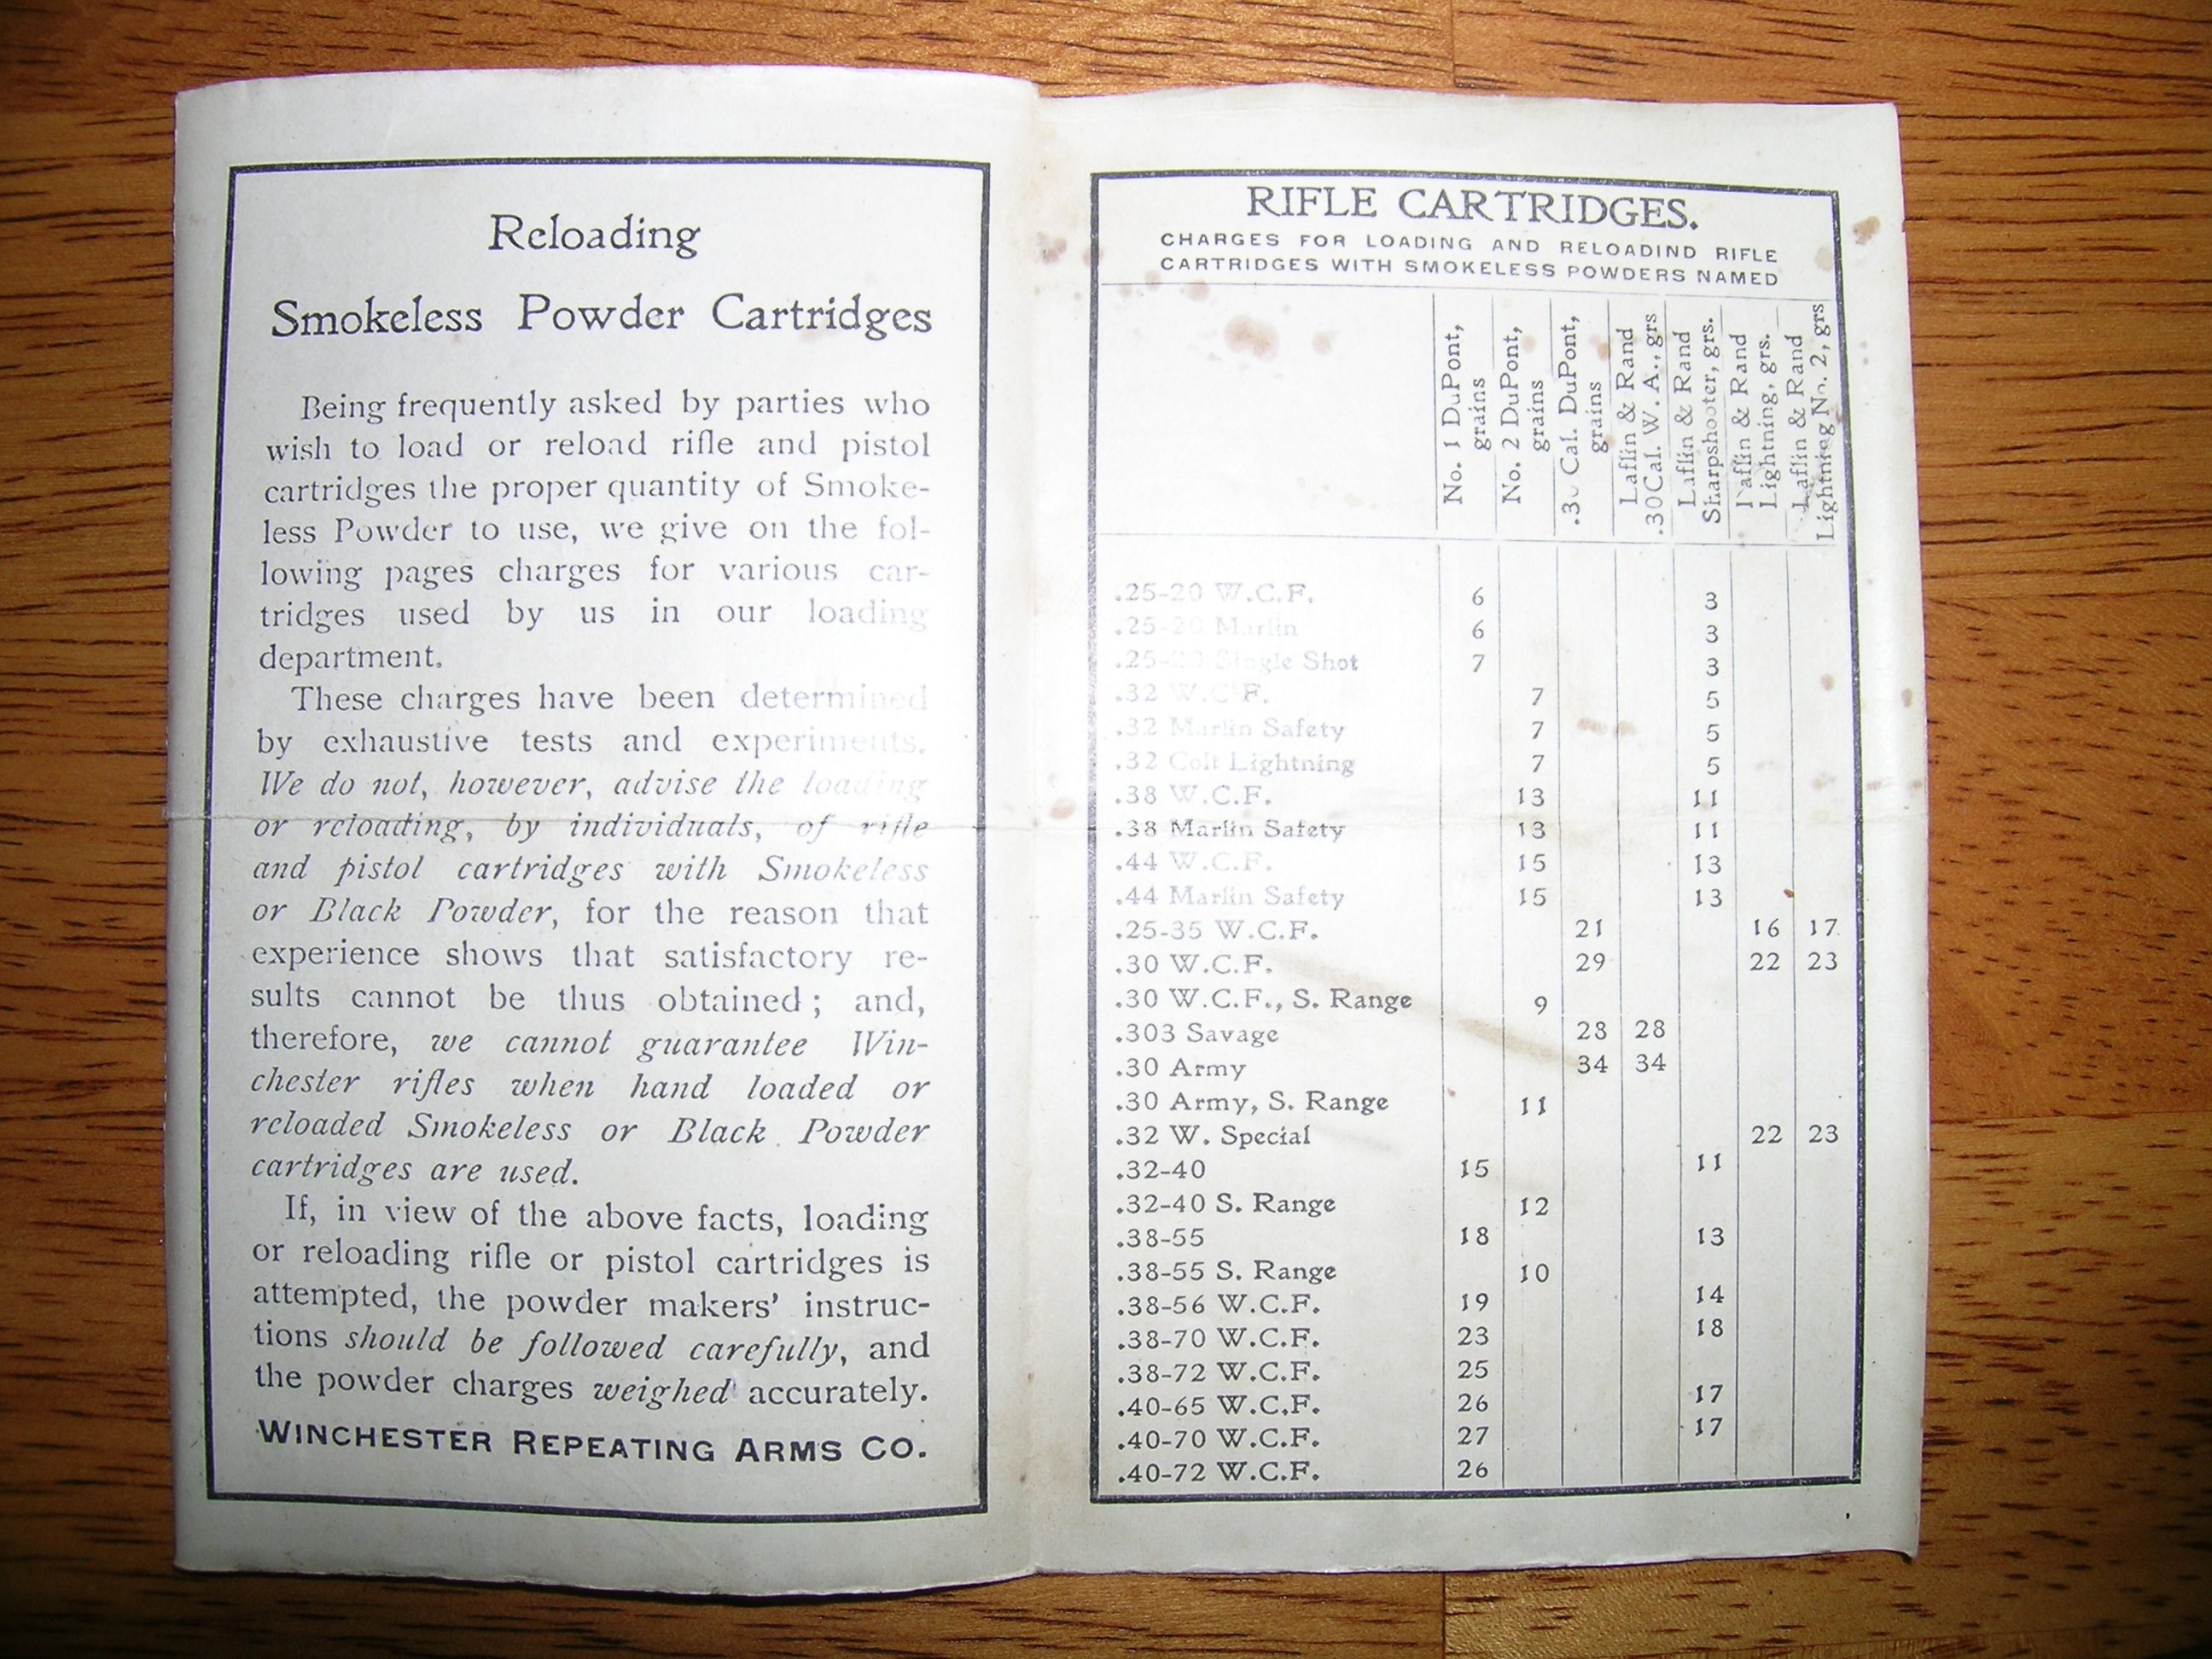 Reloading
Smokeless Powder Cartridges
Being frequently asked by parties who
wish to load or reload rifle and pistol
cartridges the proper quantity of Smoke-
less Powder to use, we give on the fol-
lowing pages charges for various car-
tridges used by us in our loading
department.
These charges have been determined
by exhaustive tests and experiments.
We do not, however, advise the loading
or reloading, by individuals, of rifle
and pistol cartridges with Smokeless
or Black Powder, for the reason that
experience shows that satisfactory re-
sults cannot be thus obtained; and,
therefore, we cannot guarantee Win-
chester rifles when hand loaded or
reloaded Smokeless or Black Powder
cartridges are used.
If, in view of the above facts, loading
or reloading rifle or pistol cartridges is
attempted, the powder makers' instruc-
tions should be followed carefully, and
the powder charges weighed accurately.
WINCHESTER REPEATING ARMS CO.
RIFLE CARTRIDGES.
CHARGES FOR LOADING AND RELOADIND RIFLE
CARTRIDGES WITH SMOKELESS POWDERS NAMED
No. 1 DuPont,
grains
No. 2 DuPont,
grains
.30 Cal. DuPont,
grains
Laflin & Rand
.30 Cal. W. A., grs
Laflin & Rand
Sharpshooter, grs.
Laflin & Rand
Lightning, grs.
Laflin & Rand
Lightning No. 2, grs
.25-20 W.C.F. 6 3
.25-20 Marlin 6 3
.25-20 Single Shot 7 3
.32 W.C.F. 7 5
.32 Marlin Safety 7 5
.32 Colt Lightning 7 5
.38 W.C.F. 13 11
.38 Marlin Safety 13 11
.44 W.C.F. 15 13
.44 Marlin Safety 15 13
.25-35 W.C.F. 21 16 17
.30 W.C.F. 29 22 23
.30 W.C.F., S. Range 9
.303 Savage 28 28
.30 Army 34 34
.30 Army, S. Range 11
.32 W. Special 22 23
.32-40 15 11
.32-40 S. Range 12
.38-55 18 13
.38-55 S. Range 10
.38-56 W.C.F. 19 14
.38-70 W.C.F. 23 18
.38-72 W.C.F. 25
.40-65 W.C.F. 26 17
.40-70 W.C.F. 27 17
.40-72 W.C.F. 26